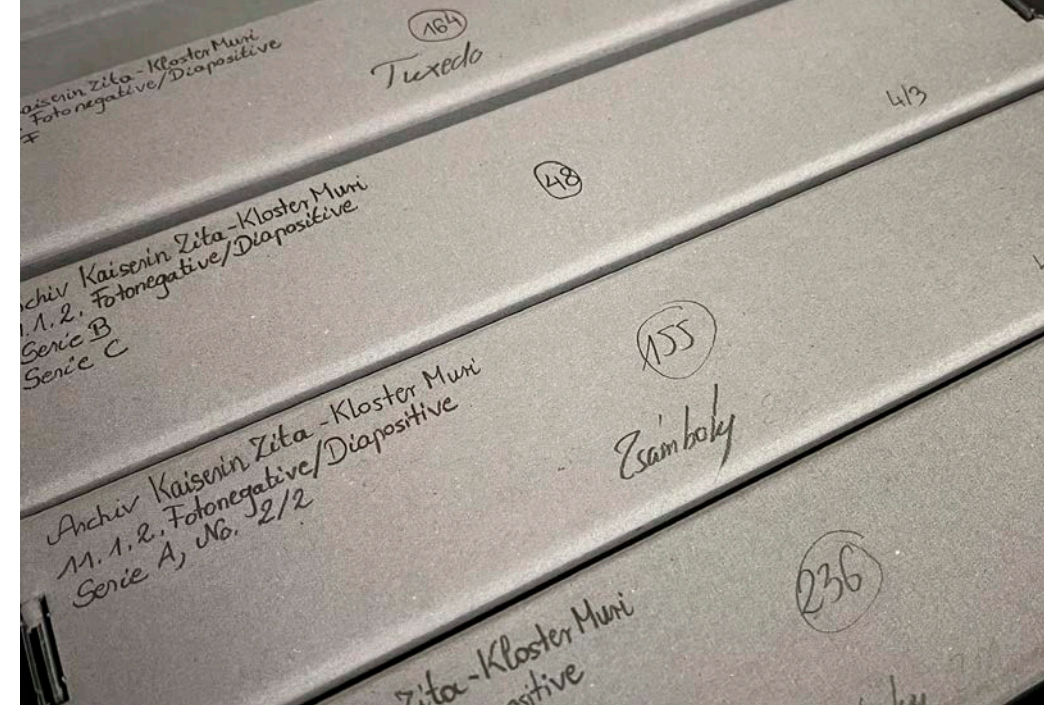 Kaiserin Zita-Kloster Muri
Fotonegative/Diapositive
F
164
Tuxedo
Archiv Kaiserin Zita-Kloster Muri
11.1.2. Fotonegative/Diapositive
Serie B
Serie C
48
4/3
Archiv Kaiserin Zita-Kloster Muri
11.1.2. Fotonegative/Diapositive
Serie A, No. 2/2
155
Zsámboky
Zita-Kloster Muri
236